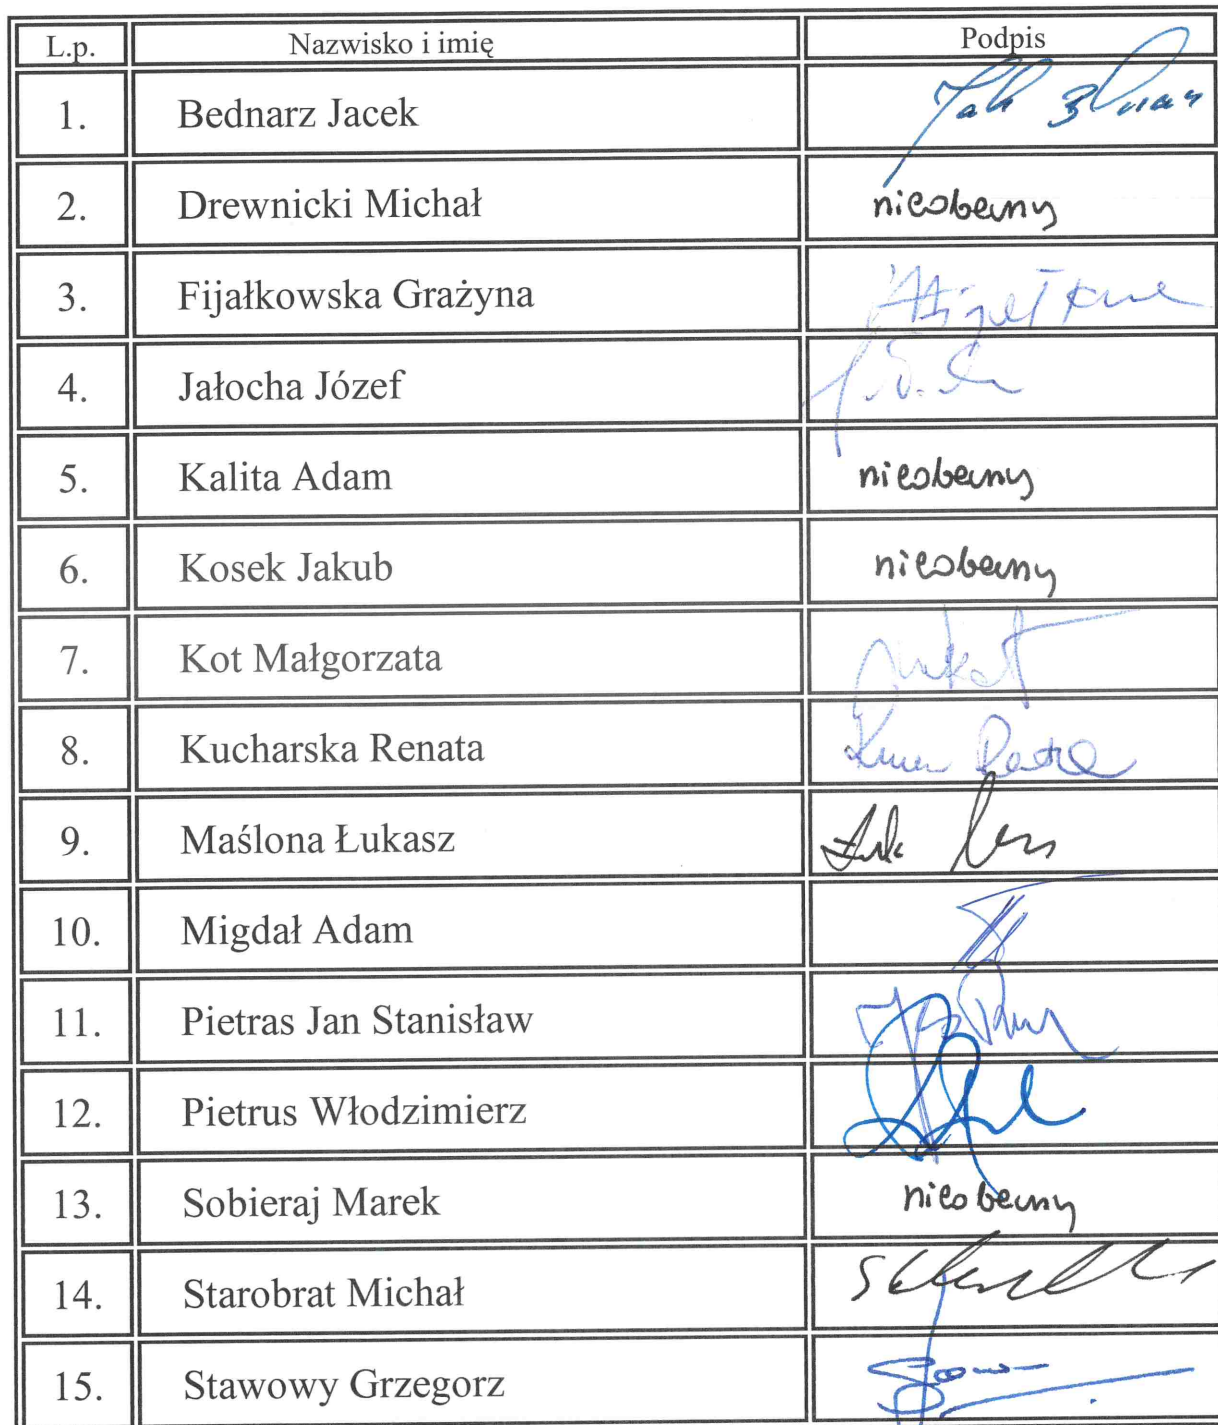 L.p. Nazwisko i imię Podpis
1. Bednarz Jacek
2. Drewnicki Michał nieobecny
3. Fijałkowska Grażyna
4. Jałocha Józef
5. Kalita Adam nieobecny
6. Kosek Jakub nieobecny
7. Kot Małgorzata
8. Kucharska Renata
9. Maślona Łukasz
10. Migdał Adam
11. Pietras Jan Stanisław
12. Pietrus Włodzimierz
13. Sobieraj Marek nieobecny
14. Starobrat Michał
15. Stawowy Grzegorz